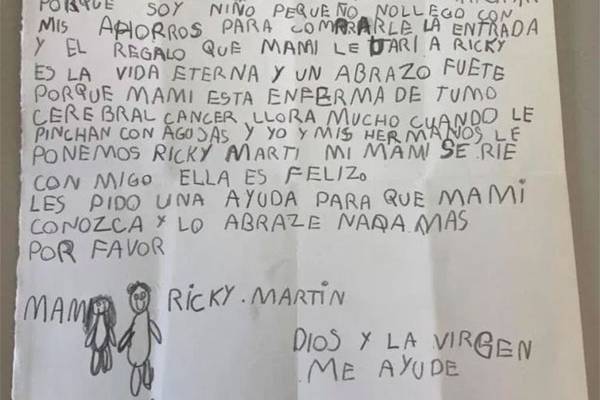 PORQUE SOY NIÑO PEQUEÑO NOLLEGO CON
MIS AHORROS PARA COMPRARLE LA ENTRADA
Y EL REGALO QUE MAMI LE DARI A RICKY
ES LA VIDA ETERNA Y UN ABRAZO FUETE
PORQUE MAMI ESTA ENFERMA DE TUMO
CEREBRAL CANCER LLORA MUCHO CUANDO LE
PINCHAN CON AGUJAS Y YO Y MIS HERMANOS LE
PONEMOS RICKY MARTI MI MAMI SE RIE
CON MIGO ELLA ES FELIZ.
LES PIDO UNA AYUDA PARA QUE MAMI
CONOZCA Y LO ABRAZE NADA MAS
POR FAVOR
MAMI RICKY.MARTIN
DIOS Y LA VIRGEN
ME AYUDE